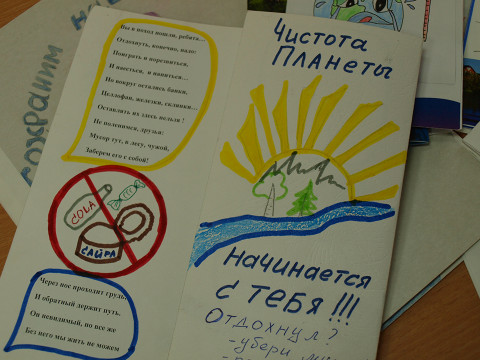 Вы в поход пошли, ребята...
Отдохнуть, конечно, надо:
Поиграть и порезвиться,
И наесться, и напиться...
Но вокруг остались банки,
Целлофан, железки, склянки...
Оставлять их здесь нельзя !
Не поленимся, друзья!
Мусор тут, в лесу, чужой,
Заберем его с собой!
COLA
САЙРА
Через нос проходит в грудь
И обратный держит путь.
Он невидимый, но все же
Без него мы жить не можем
Чистота
Планеты
Начинается
с тебя!!!
Отдохнул?
-убери
сохраним